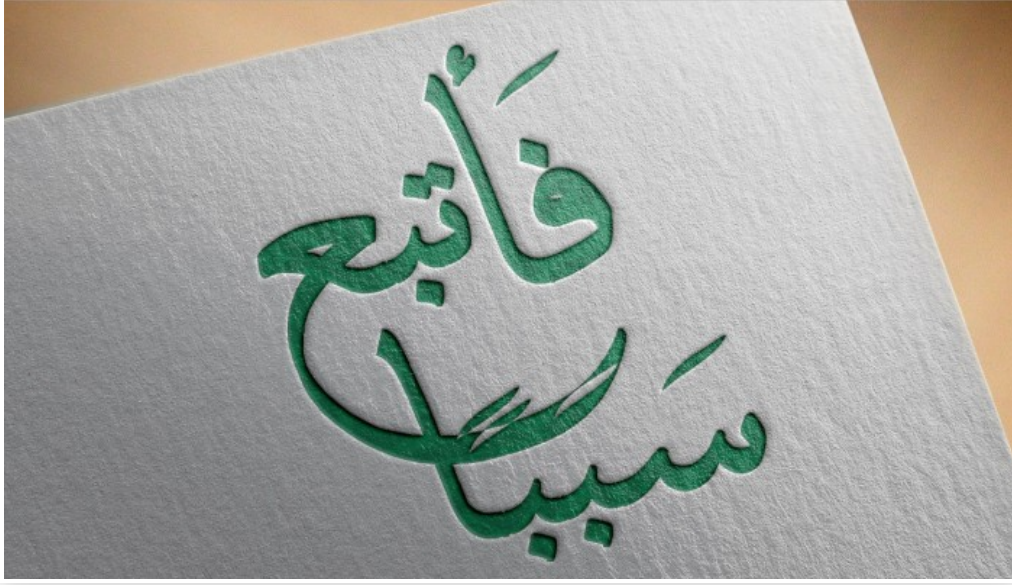 فَأتبع
سَببًا